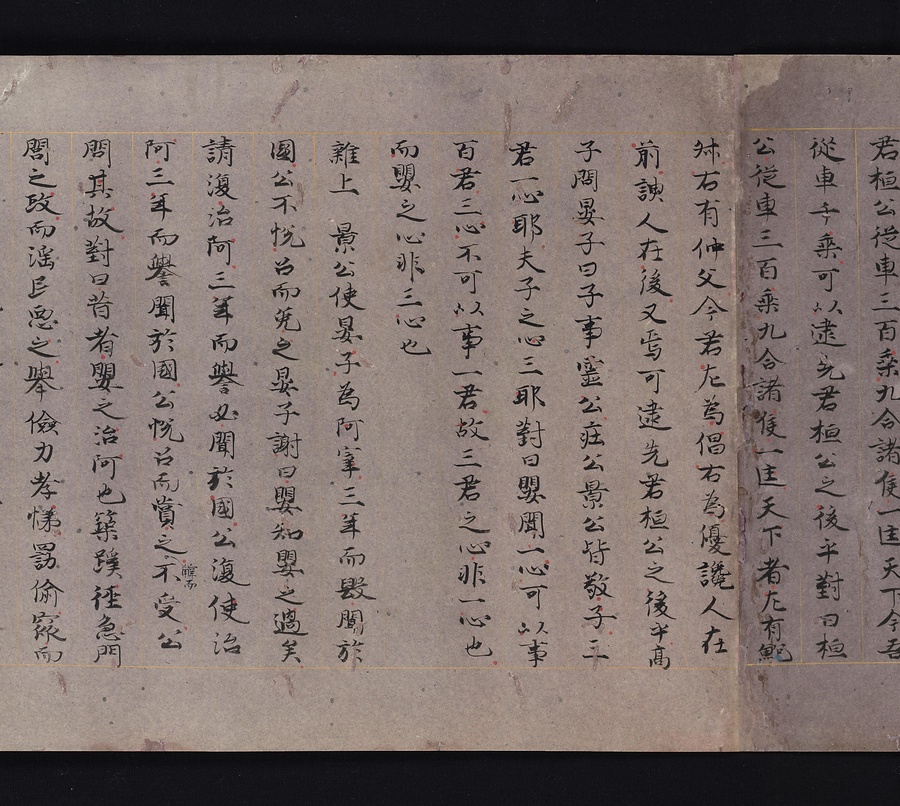 君桓公從車三百乘九合諸侯一匡天下今吾
從車千乘可以逮先君桓公之後乎對曰桓
公從車三百乘九合諸侯一匡天下者左有鮑
叔右有仲父今君左為倡右為優讒人在
前諛人在後又焉可逮先君桓公之後乎高
子問晏子曰子事靈公莊公景公皆敬子三
君一心耶夫子之心三耶對曰嬰聞一心可以事
百君三心不可以事一君故三君之心非一心也
而嬰之心非三心也
雜上　景公使晏子為阿宰三年而毀聞於
國公不悅召而免之晏子謝曰嬰知嬰之過矣
請復治阿三年而譽必聞於國公復使治
阿三年而譽聞於國公悅召而賞之辭而不受公
問其故對曰昔者嬰之治阿也築蹊徑急門
閭之政而淫民惡之舉儉力孝悌罰偷窳而